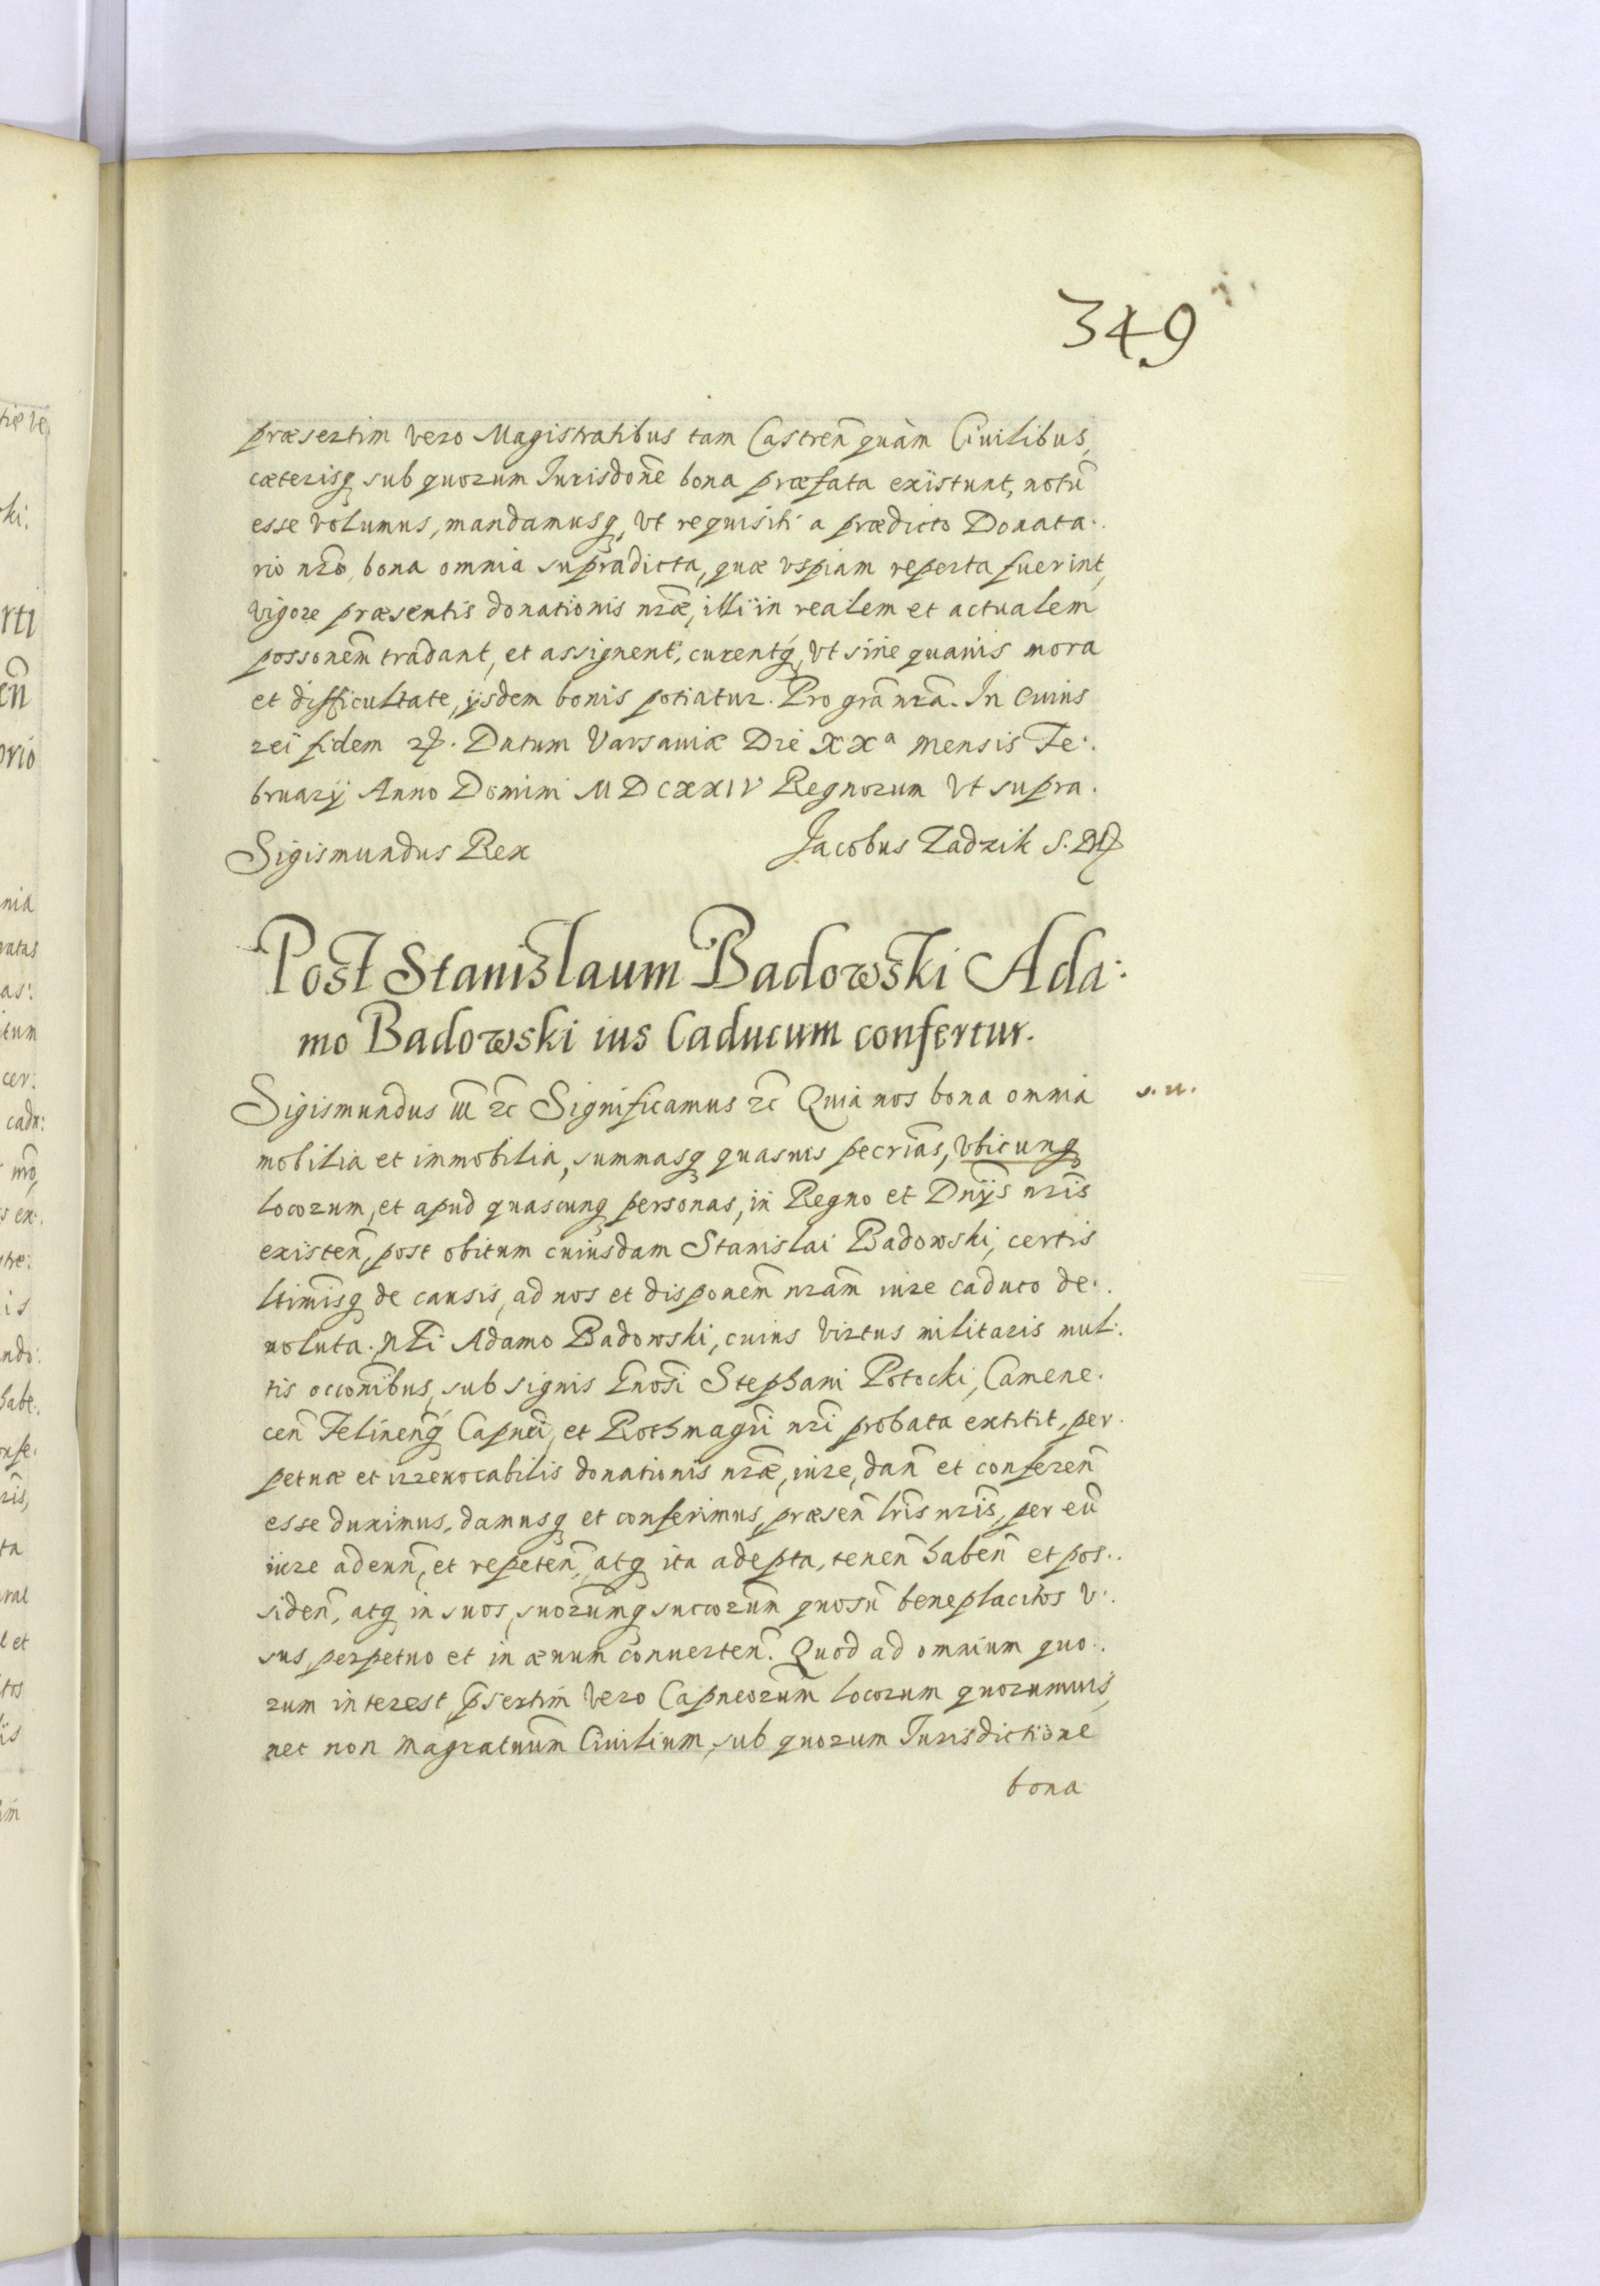 349
præsertim vero Magistratibus tam Castren̄ quàm Ciuilibus,
cæterisq sub quorum Jurisdon̄e bona præfata existunt, notū
esse volumus, mandamusq, vt requisiti a prædicto Donata:
rio nr̄o, bona omnia supradicta, quæ vspiam reperta fuerint,
vigore præsentis donationis nr̄æ, illi in realem et actualem
possonem̄ tradant, et assignent, curentq, vt sine quauis mora
et difficultate, ijsdem bonis potiatur. Pro gr̄a nr̄a. In cuius
rei fidem Datum Varsauiæ Die XXa mensis Fe:
bruarij Anno Domini MDCXXIV Regnorum vt supra.
Sigismundus Rex Jacobus Zadzik S.
Post Stanislaum Badowski Ada:
mo Badowski ius Caducum confertur.
Sigismundus III &c Significamus &c Quia nos bona omnia
mobilia et immobilia, summasq quasuis pecrias̄, vbicunq
locorum, et apud quascunq personas, in Regno et Dn̄ijs nr̄is
existen̄, post obitum cuiusdam Stanislai Badowski, certis
ltimis̄q de causis, ad nos et disponem̄ nr̄am iure caduco de:
uoluta. Nli Adamo Badowski, cuius virtus militaris mul:
tis occonibus̄, sub signis Gn̄osi Stephani Potocki, Camene:
cen̄ Felinen̄q Capnei, et Rothmagri nr̄i probata extitit, per:
petuæ et irreuocabilis donationis nr̄æ, iure, dan̄ et conferen̄
esse duximus, damusq et conferimus, præsen̄ lr̄is nr̄is, per eū
iure adeun̄, et repeten̄, atq ita adepta, tenen̄ haben̄ et pos:
siden̄, atq in suos, suorumq succorum̄ quosū beneplacitos v:
sus, perpetuo et in æuum conuerten̄. Quod ad omnium quo:
rum interest, p̄sertim vero Capneorum̄ locorum quorumuis,
nec non magratuum̄ Ciuilium, sub quorum Jurisdictione
bona